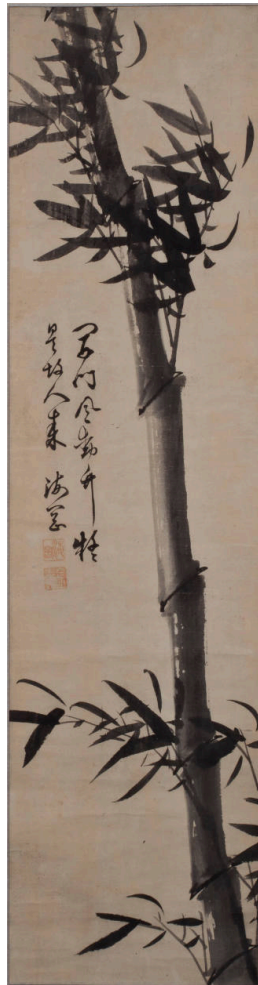 開門風動竹疑
是故人來 海岡